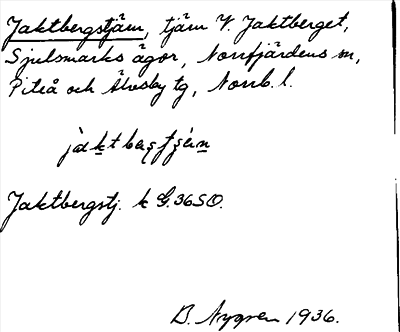 Jaktbergstjärn, tjärn V. Jaktberget,
Sjulsmarks ägor, Norrfjärdens sn,
Piteå och Älvsby tg, Norrb. l.
Jaktbergstj. k G. 36SO.
B. Nygren 1936.